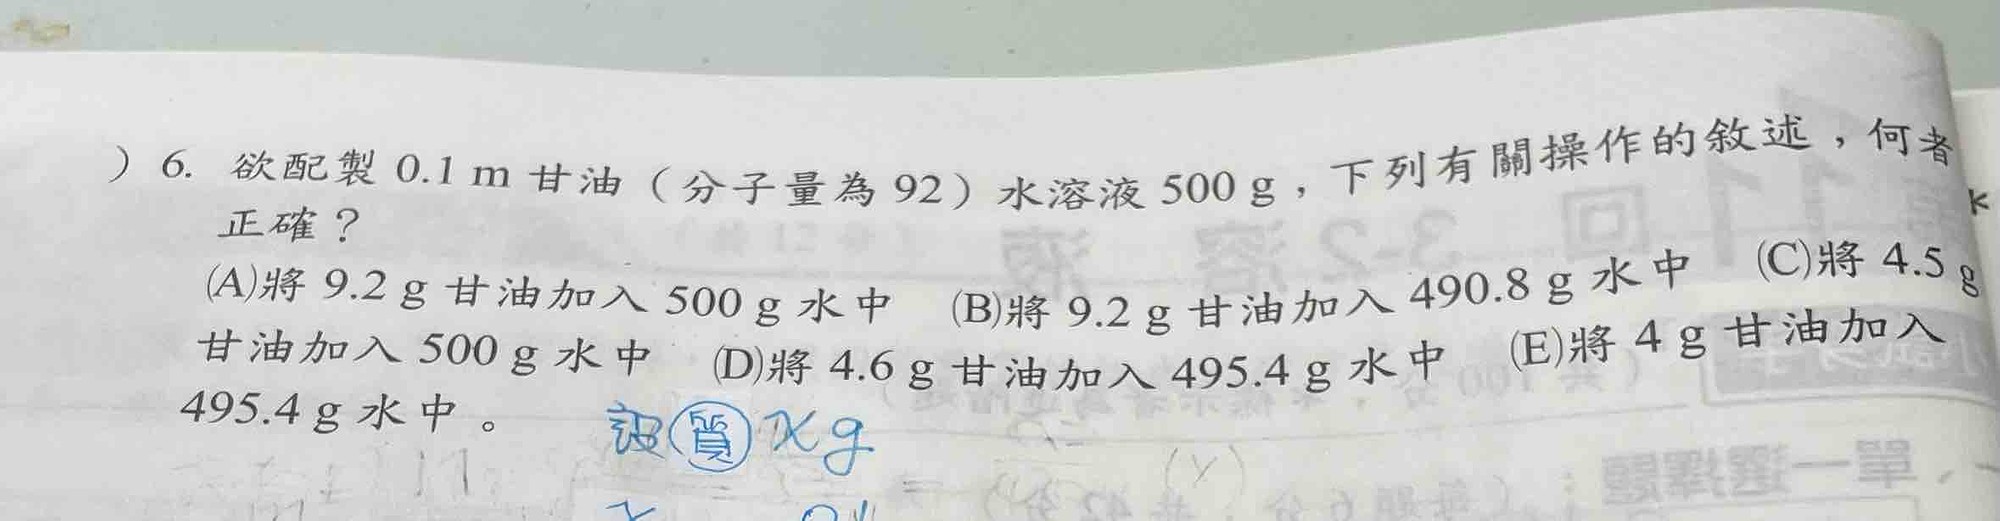 ) 6. 欲配製 0.1 m 甘油（分子量為 92）水溶液 500 g，下列有關操作的敘述，何者
正確？
(A)將 9.2 g 甘油加入 500 g 水中 (B)將 9.2 g 甘油加入 490.8 g 水中 (C)將 4.5 g
甘油加入 500 g 水中 (D)將 4.6 g 甘油加入 495.4 g 水中 (E)將 4 g 甘油加入
495.4 g 水中。
設質 x g